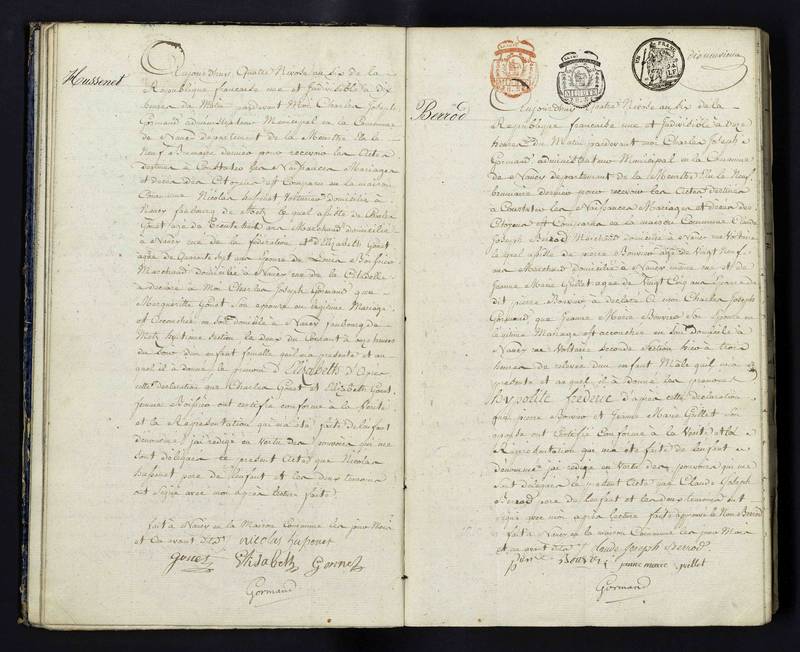 Hussenet
Aujourd'huy Quatre Nivose an Six de la
République française une et Indivisible à dix
heures du Matin pardevant Moi Charles Joseph
Gormand administrateur Municipal en la Commune
de Nancy département de la Meurthe élu le
Neuf Brumaire dernier pour recevoir les Actes
destinés à Constater les Naissances Mariages
et décès des Citoyens est Comparu en la maison
Commune Nicolas domicilié à
Nancy faubourg de Metz le quel assisté de Charles
agé de Trente huit ans Marchand domicilié
à Nancy rue de la fédération et d'Elizabeth
agée de Quarante Sept ans femme de Louis
Marchand domiciliée à Nancy rue de la Citadelle
a déclaré à Moi Charles Joseph Gormand que
Marguerite son épouse en légitime Mariage
est accouchée en son domicile à Nancy faubourg de
Metz Septième Section le deux du Courant à onze heures
du Soir d'un enfant femelle qu'il m'a présenté et au
quel il a donné le prénom d'Elizabeth d'après
cette déclaration que Charles et Elizabeth
femme ont certifié conforme à la Vérité
et la Représentation qui m'a été faite de l'enfant
dénommé j'ai rédigé en Vertu des pouvoirs qui me
sont délégués le présent Acte que Nicolas
père de l'enfant et les deux témoins
ont Signé avec moi après lecture faite
fait à Nancy en la Maison Commune les jour Mois
et an avant dits Nicolas
Elisabeth
Gormand
MINUTE
Berrod
Aujourd'huy Quatre Nivose an Six de la
République française une et Indivisible à onze
heures du Matin pardevant moi Charles Joseph
Gormand administrateur Municipal en la Commune
de Nancy département de la Meurthe élu le Neuf
brumaire dernier pour recevoir les Actes destinés
à Constater les Naissances Mariages et décès des
Citoyens est Comparu en la maison Commune Claude
Joseph Berrod Marchand domicilié à Nancy rue Voltaire
le quel assisté de pierre Bouvier agé de Vingt Neuf
ans Marchand domicilié à Nancy même rue et de
Jeanne Marie Guillet agée de Vingt Cinq ans Epouse du
dit pierre Bouvier a déclaré à moi Charles Joseph
Gormand, que Jeanne Marie Bouvier son Epouse en
légitime Mariage est accouchée en son domicile à
Nancy rue Voltaire seconde Section hier à trois
heures de relevée d'un enfant Mâle qu'il m'a
présenté et au quel il a donné les prénoms
hypolite fréderic d'après cette déclaration
que pierre Bouvier et Jeanne Marie Guillet Son
épouse ont Certifié Conforme à la Vérité et la
Représentation qui m'a été faite de l'enfant
dénommé j'ai rédigé en Vertu des pouvoirs qui me
sont délégués le présent Acte que Claude Joseph
Berrod père de l'enfant et les deux témoins ont
signé avec moi après Lecture faite approuvé le Nom Berrod
fait à Nancy en la maison Commune les jour Mois
et an avant dits Claude Joseph Berrod
pierre Bouvier jeanne marie guillet
Gormand